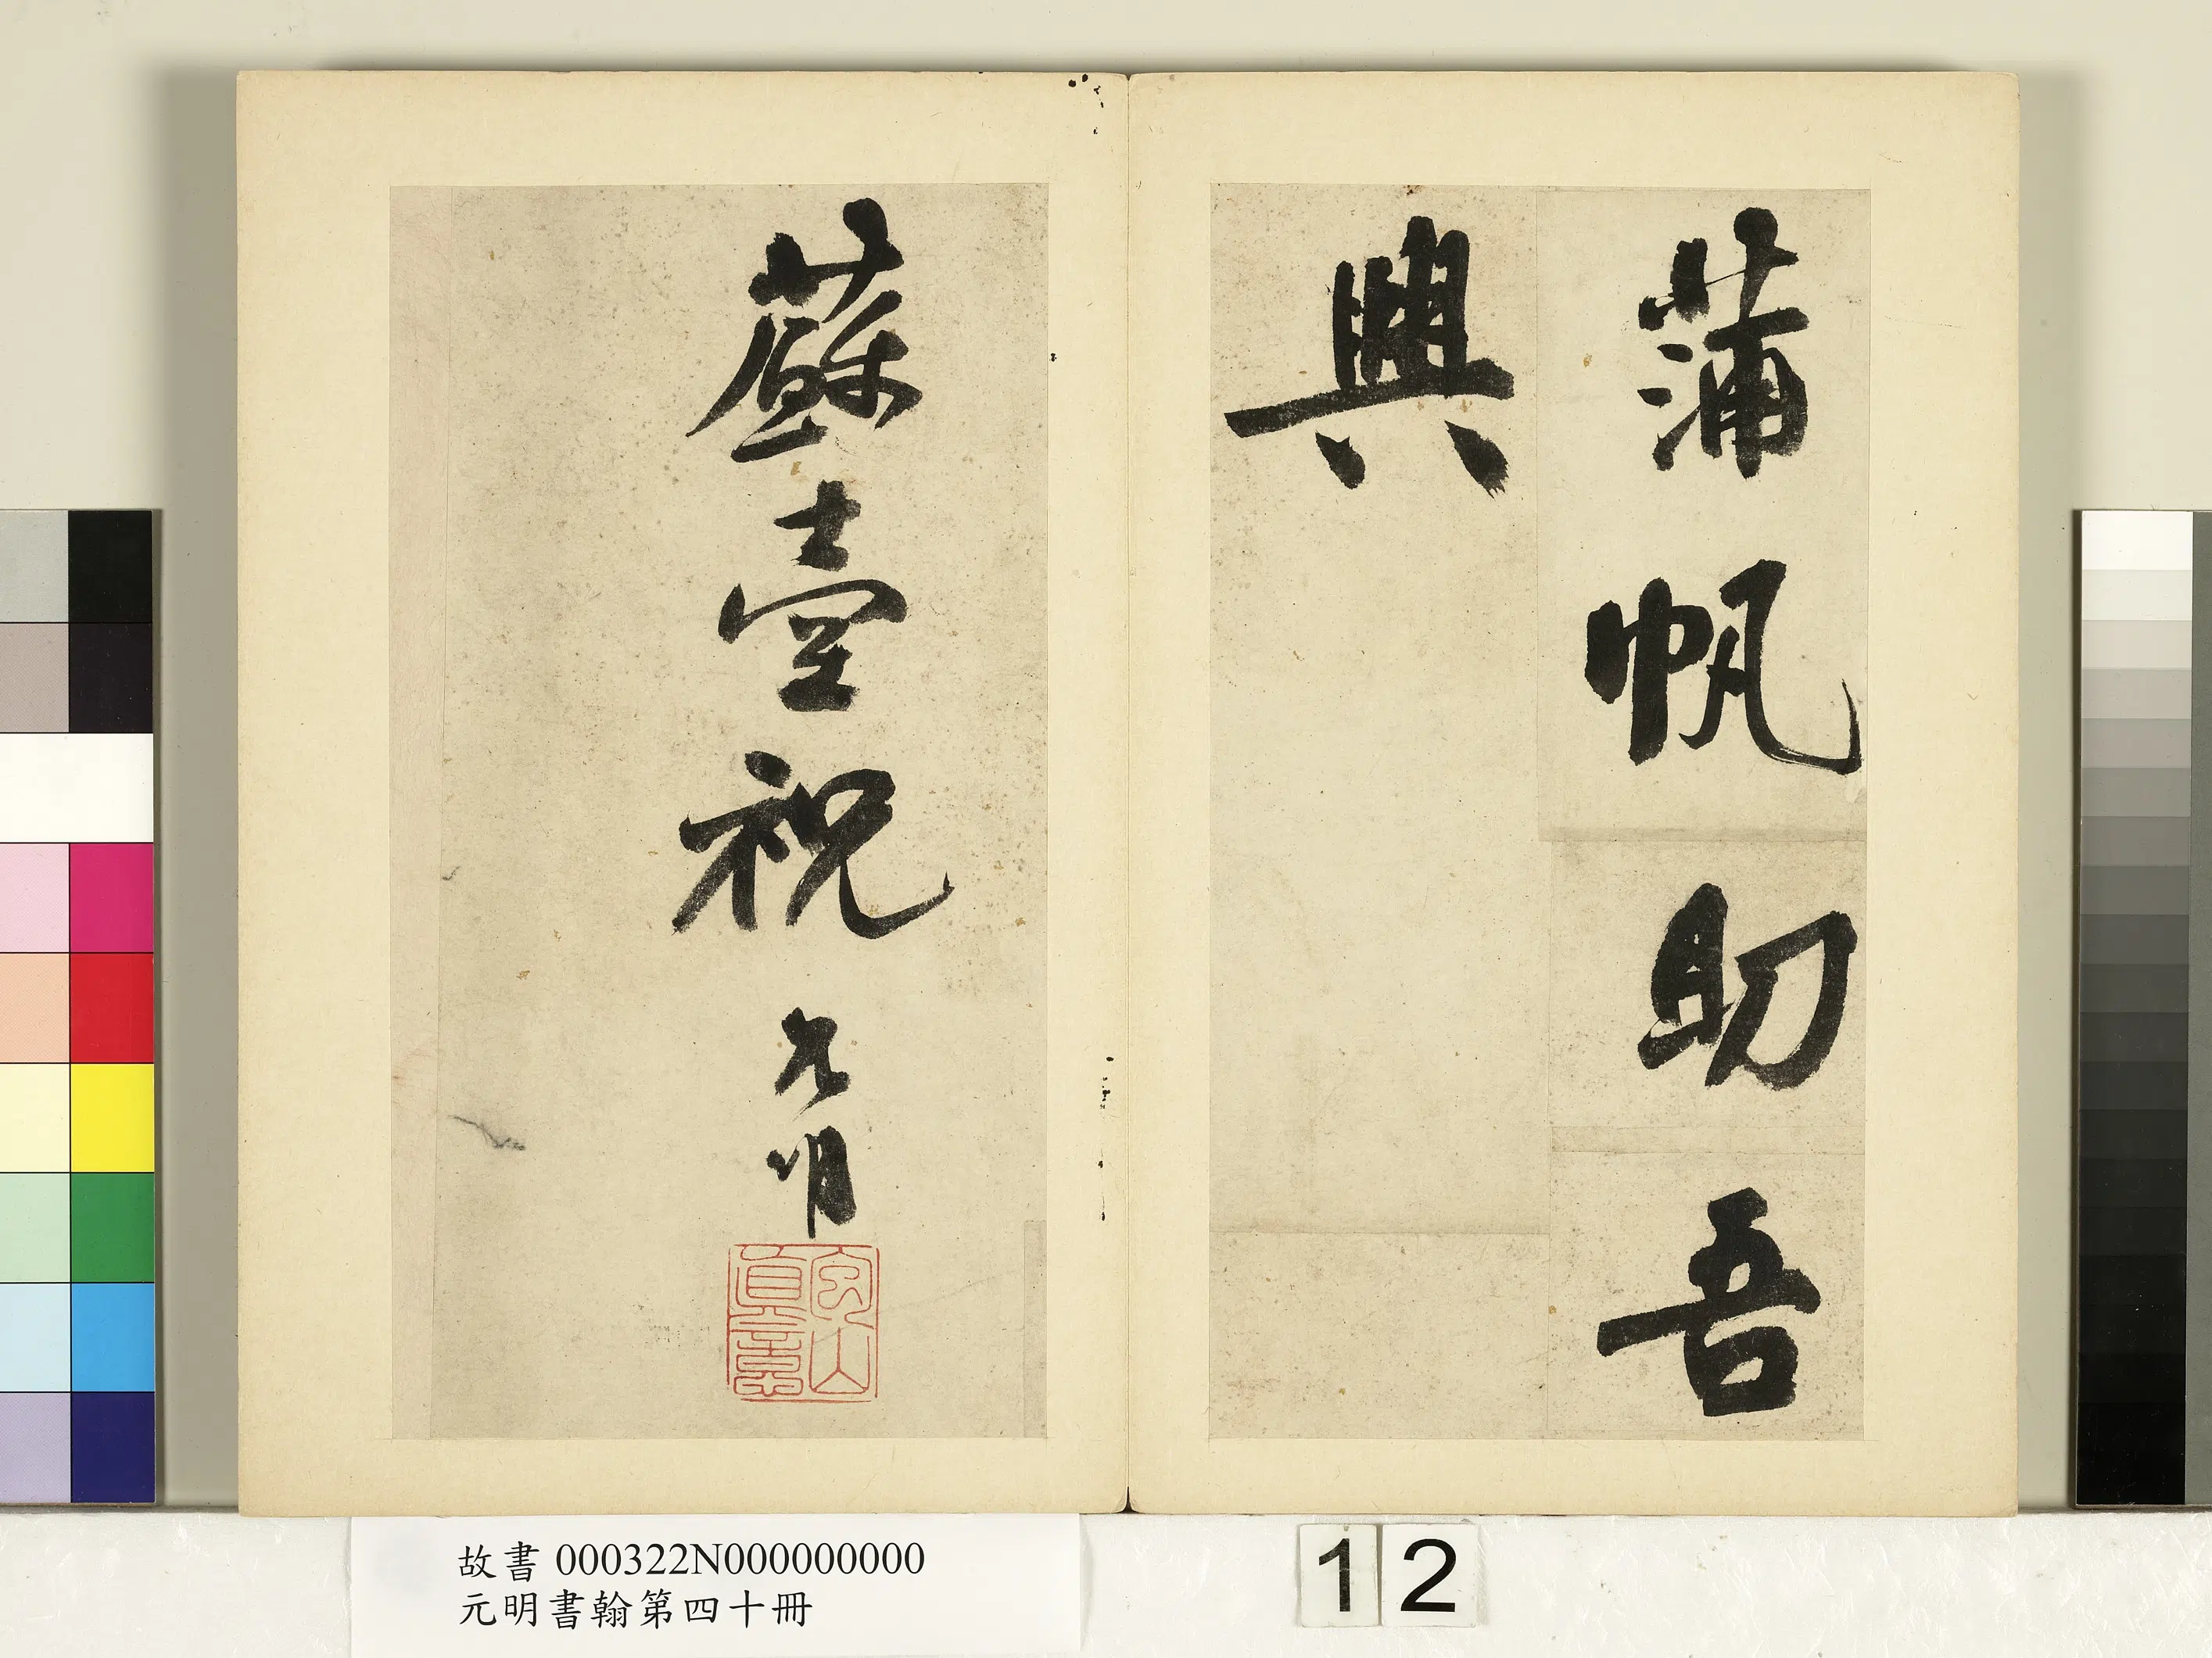 蒲帆助吾
興
蘇臺祝允明
故書 000322N000000000
元明書翰第四十冊
12